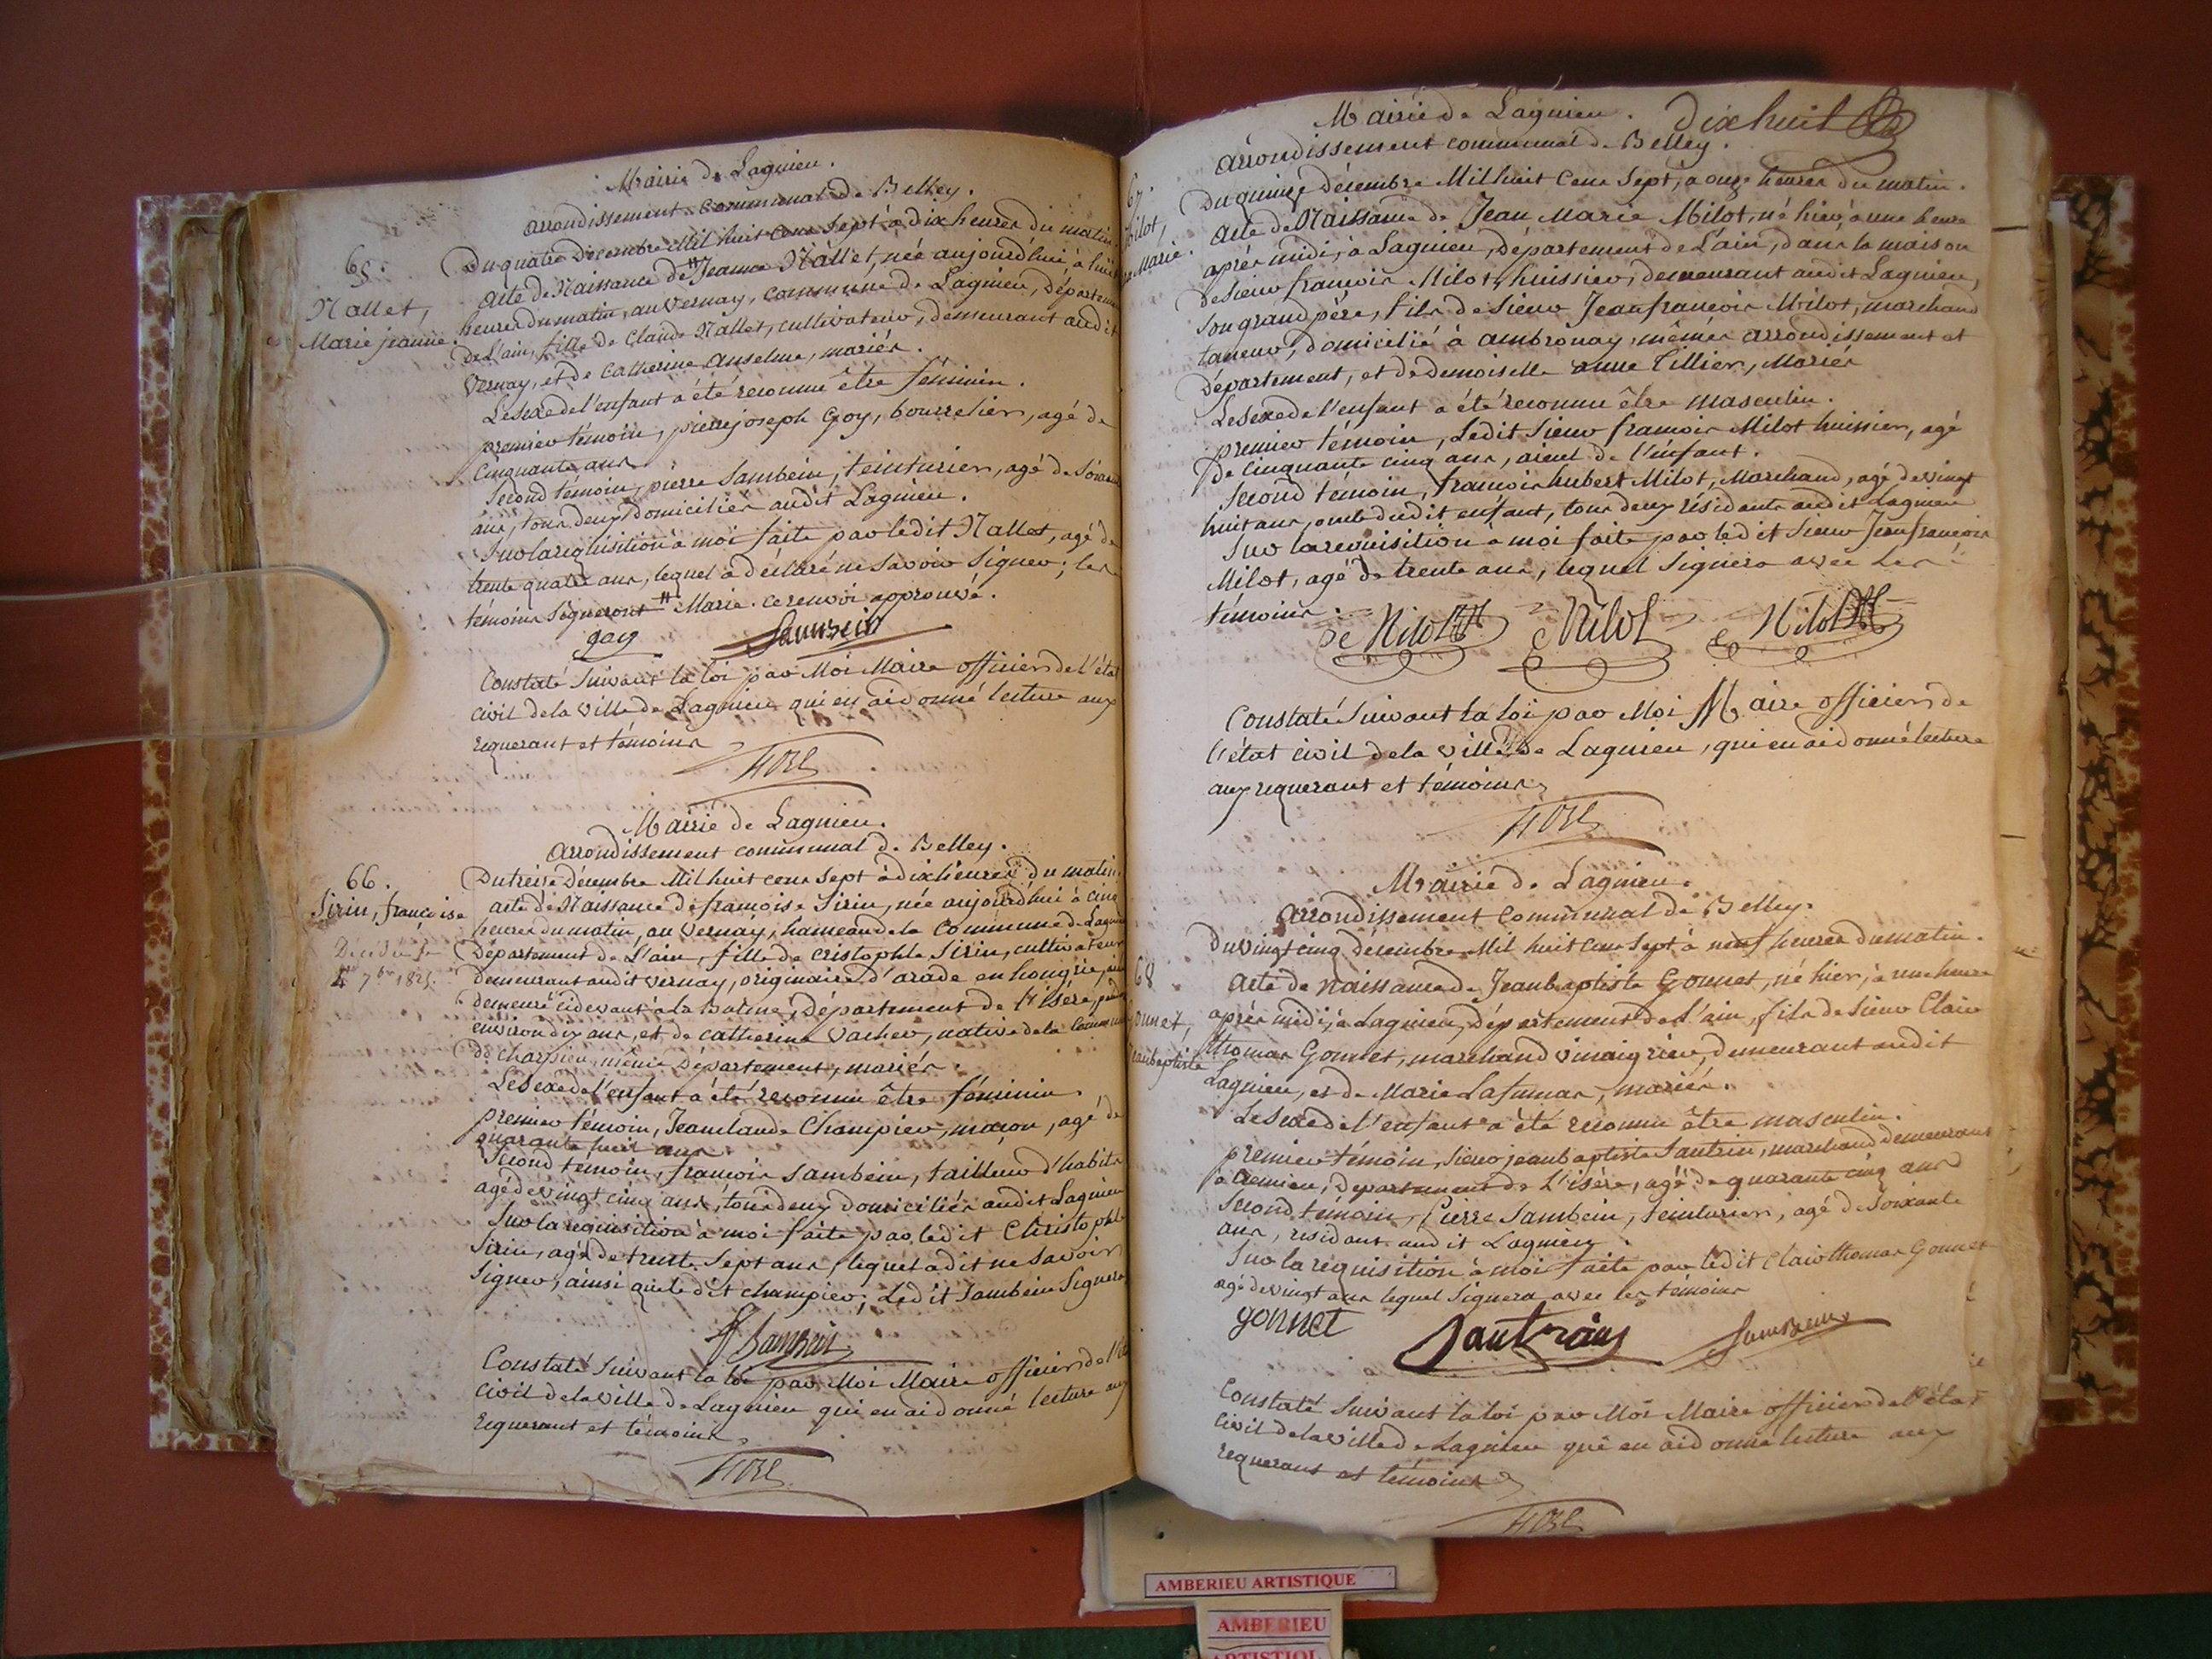 Mairie de Lagnieu.
arrondissement communal de Belley.
65.
Nallet,
Marie jeanne.
Du quatre Décembre Mil huit Cens Sept à dix heures du matin
acte de Naissance de # Jeanne Nallet, née aujourd'hui, à huit
heures du matin, au Vernay, commune de Lagnieu, départeme
de L'ain, fille de Claude Nallet, cultivateur, demeurant audit
Vernay, et de Catherine anselme, mariés.
Le Sexe de l'enfant à été reconnu être féminin.
premier témoin, pierre joseph Goy, bourrelier, agé de
Cinquante ans
Second témoin, pierre Sambein, teinturier, agé de Soixan
ans, tous deux domiciliés audit Lagnieu.
Sur la requisition à moi faite par ledit Nallet, agé de
trente quatre ans, lequel à déclaré ne Savoir Signer; les
témoins Signeront # Marie. ce renvoi approuvé.
goy Sambein
Constaté Suivant la loi par Moi Maire officier de l'état
civil de la ville de Lagnieu qui en ai donné lecture aux
requerant et témoins
Mairie de Lagnieu.
arrondissement communal de Belley.
66.
Sirin, françoise
Décédée le
4 7bre 1825.
Du treize Décembre Mil huit cens Sept à dix heures du matin.
acte de Naissance de françoise Sirin, née aujourd'hui à cinq
heures du matin, au Vernay, hameau de la Commune de Lagnieu
Département de L'ain, fille de cristophle Sirin, cultivateur
demeurant audit Vernay, originaire d'arade en hongrie,
demeuré cidevant à la Balme, Département de l'isère,
environ dix ans, et de catherine Vacher, native de la Commune
de charpieu, même Département, mariés.
Le Sexe de l'enfant à été reconnu être féminin.
premier témoin, Jean claude Champier, maçon, agé de
quarante huit ans.
Second témoin, françois Sambein, tailleur d'habits
agé de vingt cinq ans, tous deux domiciliés audit Lagnieu
Sur la requisition à moi faite par ledit Christophle
Sirin, agé de trente Sept ans, lequel à dit ne Savoir
Signer, ainsi que ledit champier; Ledit Sambein Signera
f Sambein
Constaté Suivant la loi par Moi Maire officier de l'état
civil de la ville de Lagnieu qui en ai donné lecture aux
requerant et témoins
Mairie de Lagnieu. dix huit
arrondissement communal de Belley.
67.
Milot,
Marie.
Du quinze décembre Mil huit Cens Sept, à onze heures du matin.
acte de Naissance de Jean Marie Milot, né hier, à une heure
après midi, à Lagnieu, Département de L'ain, dans la maison
de Sieur françois Milot, huissier, demeurant audit Lagnieu,
Son grand père, fils de Sieur Jean françois Milot, marchand
taneur, domicilié à ambronay, mêmes arrondissement et
Département, et de demoiselle anne Tillier, Mariés
Le Sexe de l'enfant a été reconnu être masculin.
premier témoin, Ledit Sieur françois Milot huissier, agé
de cinquante cinq ans, aieul de l'enfant.
Second témoin, françois hubert Milot, Marchand, agé de vingt
huit ans, oncle dudit enfant, tous deux résidants audit Lagnieu
Sur la requisition à moi faite par ledit Sieur Jean françois
Milot, agé de trente ans, lequel Signera avec Les
témoins.
Milot Milot Milot
Constaté Suivant la loi par Moi Maire officier de
l'état civil de la ville de Lagnieu, qui en ai donné lecture
aux requerant et témoins
Mairie de Lagnieu.
arrondissement Communal de Belley.
68.
Gonnet,
Jean baptiste
Du vingt cinq décembre Mil huit cens Sept à neuf heures du matin.
Acte de naissance de Jean baptiste Gonnet, né hier, à une heure
après midi, à Lagnieu, département de L'ain, fils de Sieur Clair
thomas Gonnet, marchand vinaigrier, demeurant audit
Lagnieu, et de Marie Lasumas, mariés.
Le Sexe de l'enfant a été reconnu être masculin.
premier témoin, Sieur jean baptiste Sautrin, marchand demeurant
à Cremieu, département de L'isère, agé de quarante cinq ans
Second témoin, Pierre Sambein, teinturier, agé de Soixante
ans, résidant audit Lagnieu.
Sur la requisition à moi faite par ledit Clair thomas Gonnet
agé de vingt ans lequel Signera avec les témoins
gonnet Sautrain Sambein
Constaté Suivant la loi par Moi Maire officier de l'état
civil de la ville de Lagnieu qui en ai donné lecture aux
requerant et témoins
AMBERIEU ARTISTIQUE
AMBERIEU
ARTISTIQ